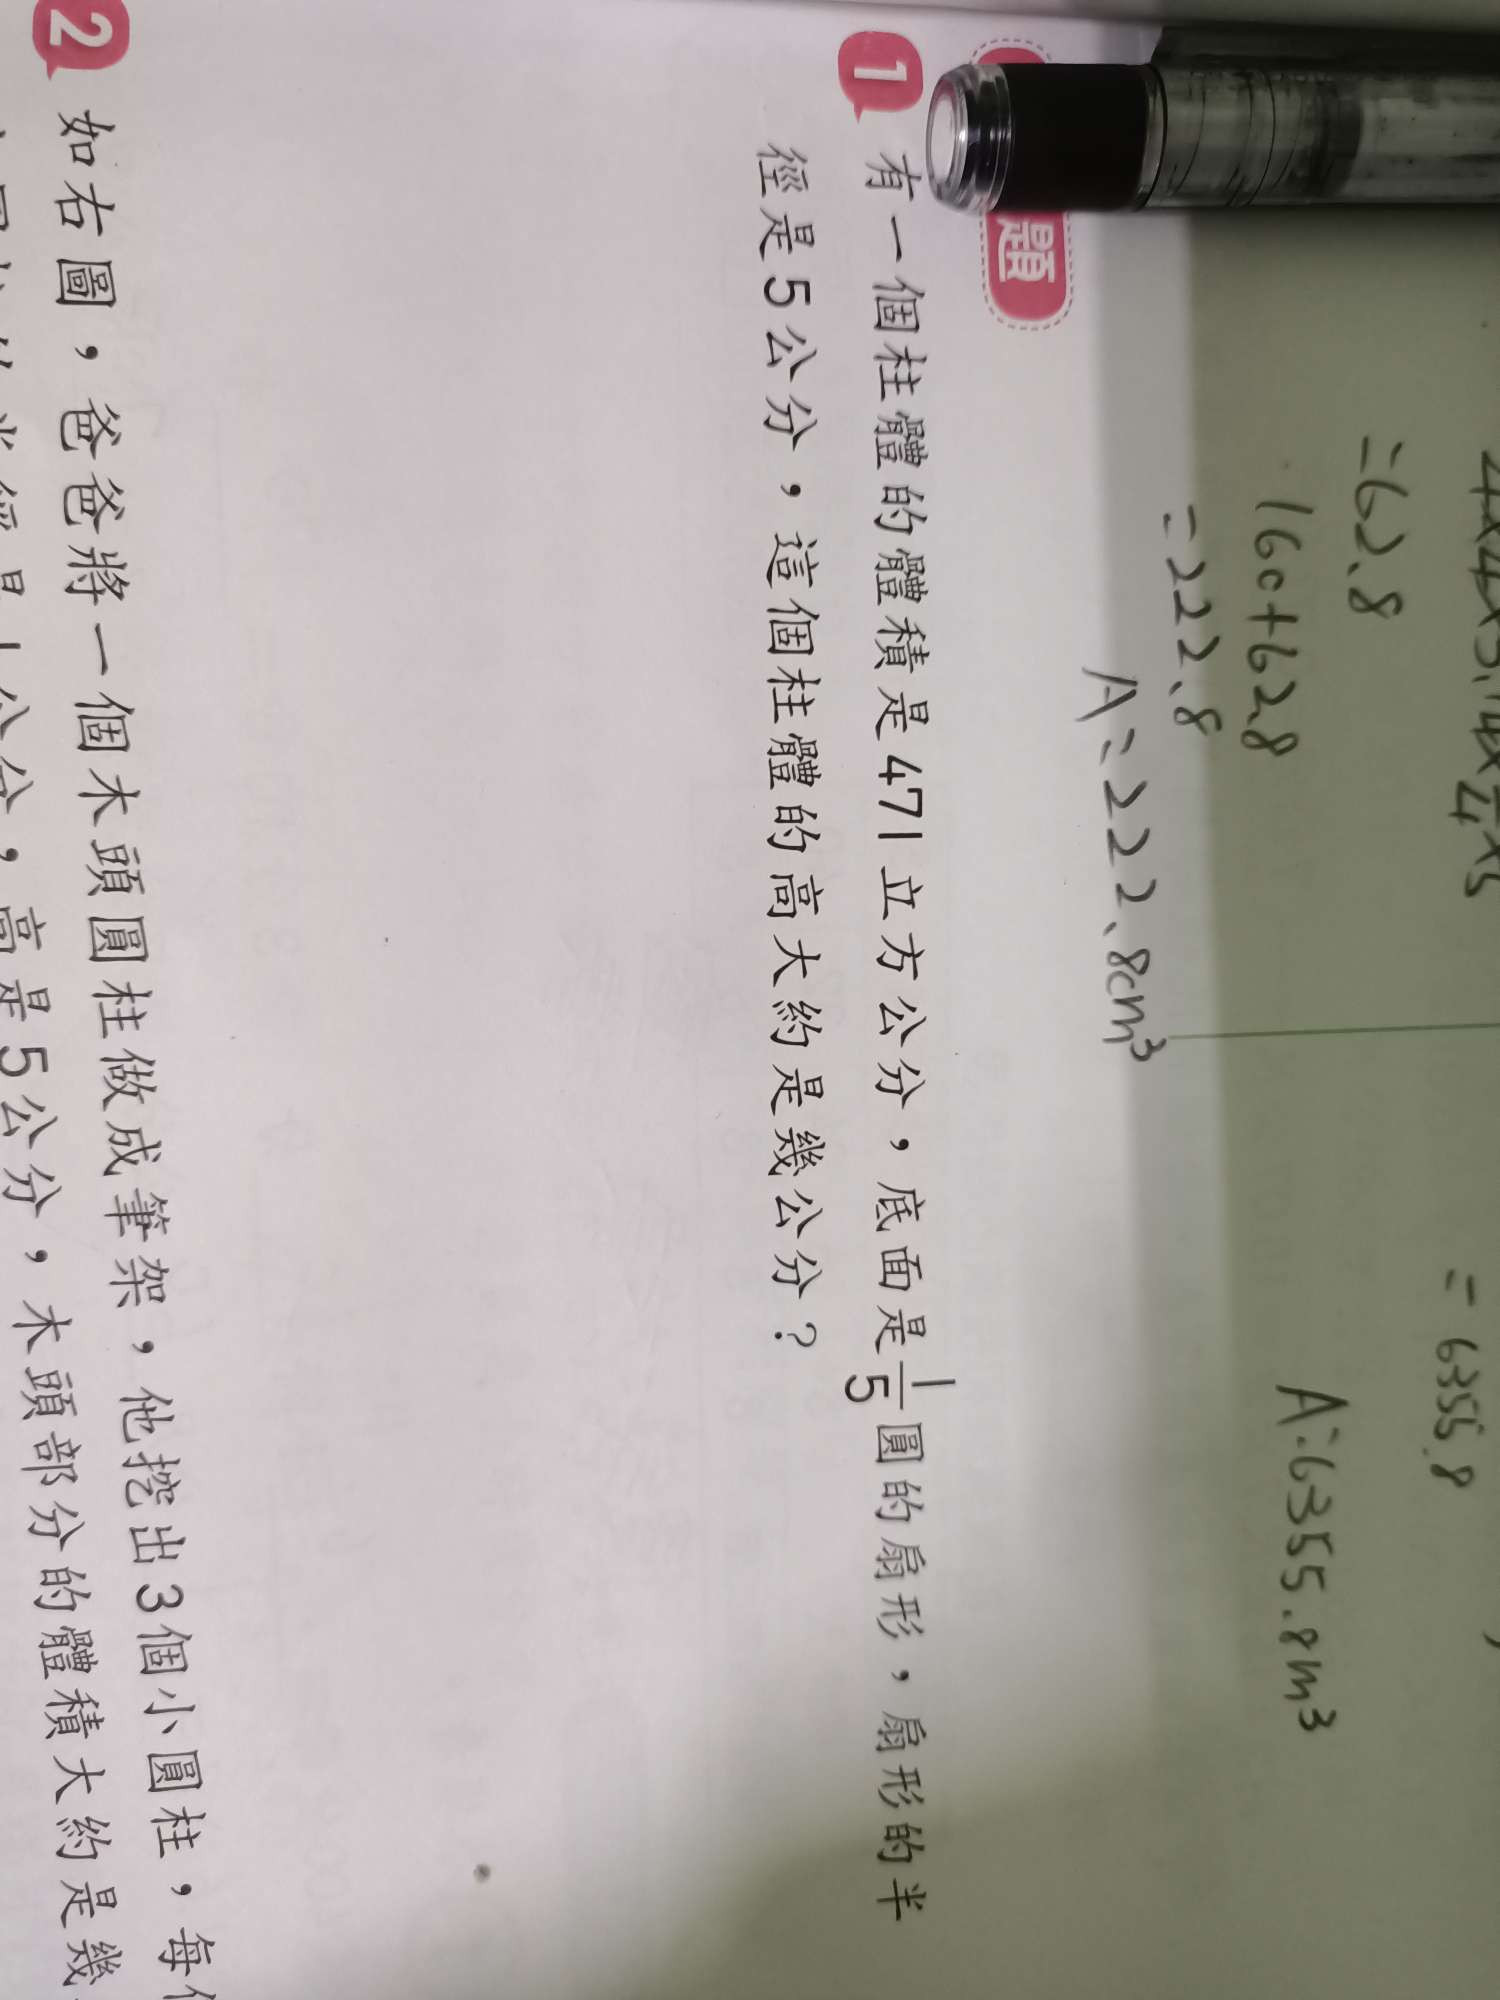 =62.8
160+62.8
=222.8
A=222.8cm³
=6355.8
A:6355.8m³
題
1 有一個柱體的體積是471立方公分,底面是1/5圓的扇形,扇形的半
徑是5公分,這個柱體的高大約是幾公分?
2 如右圖,爸爸將一個木頭圓柱做成筆架,他挖出3個小圓柱,每
半徑是1公分,高是5公分,木頭部分的體積大約是幾